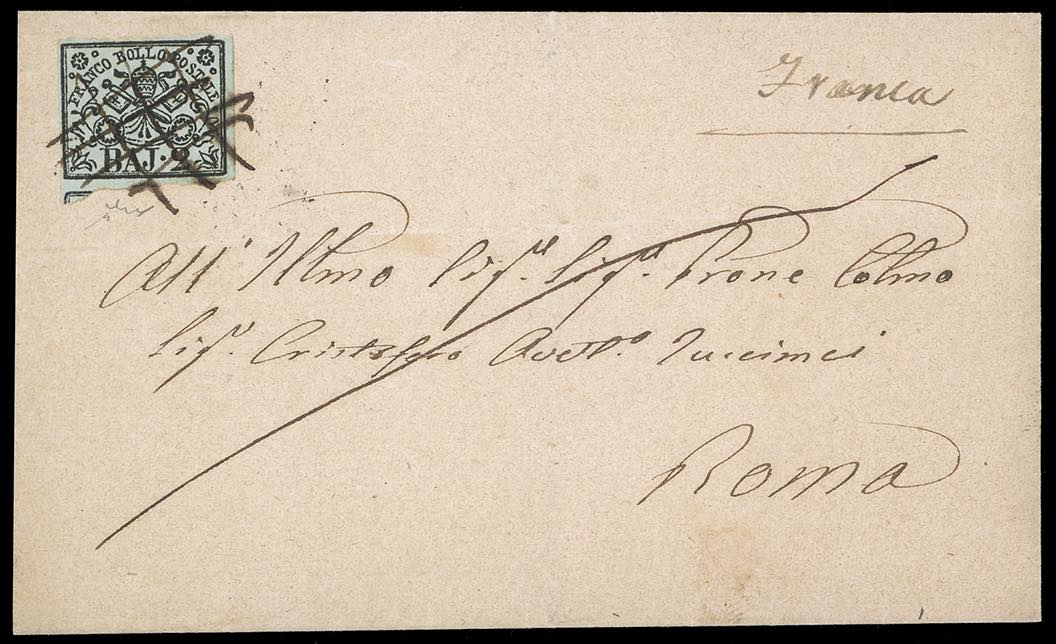 FRANCO BOLLO POSTALE
BAJ. 2
Franca
All' Illmo Sigr. Sigr. Prone Colmo
Sigr. Cristoforo Avvto.
Roma